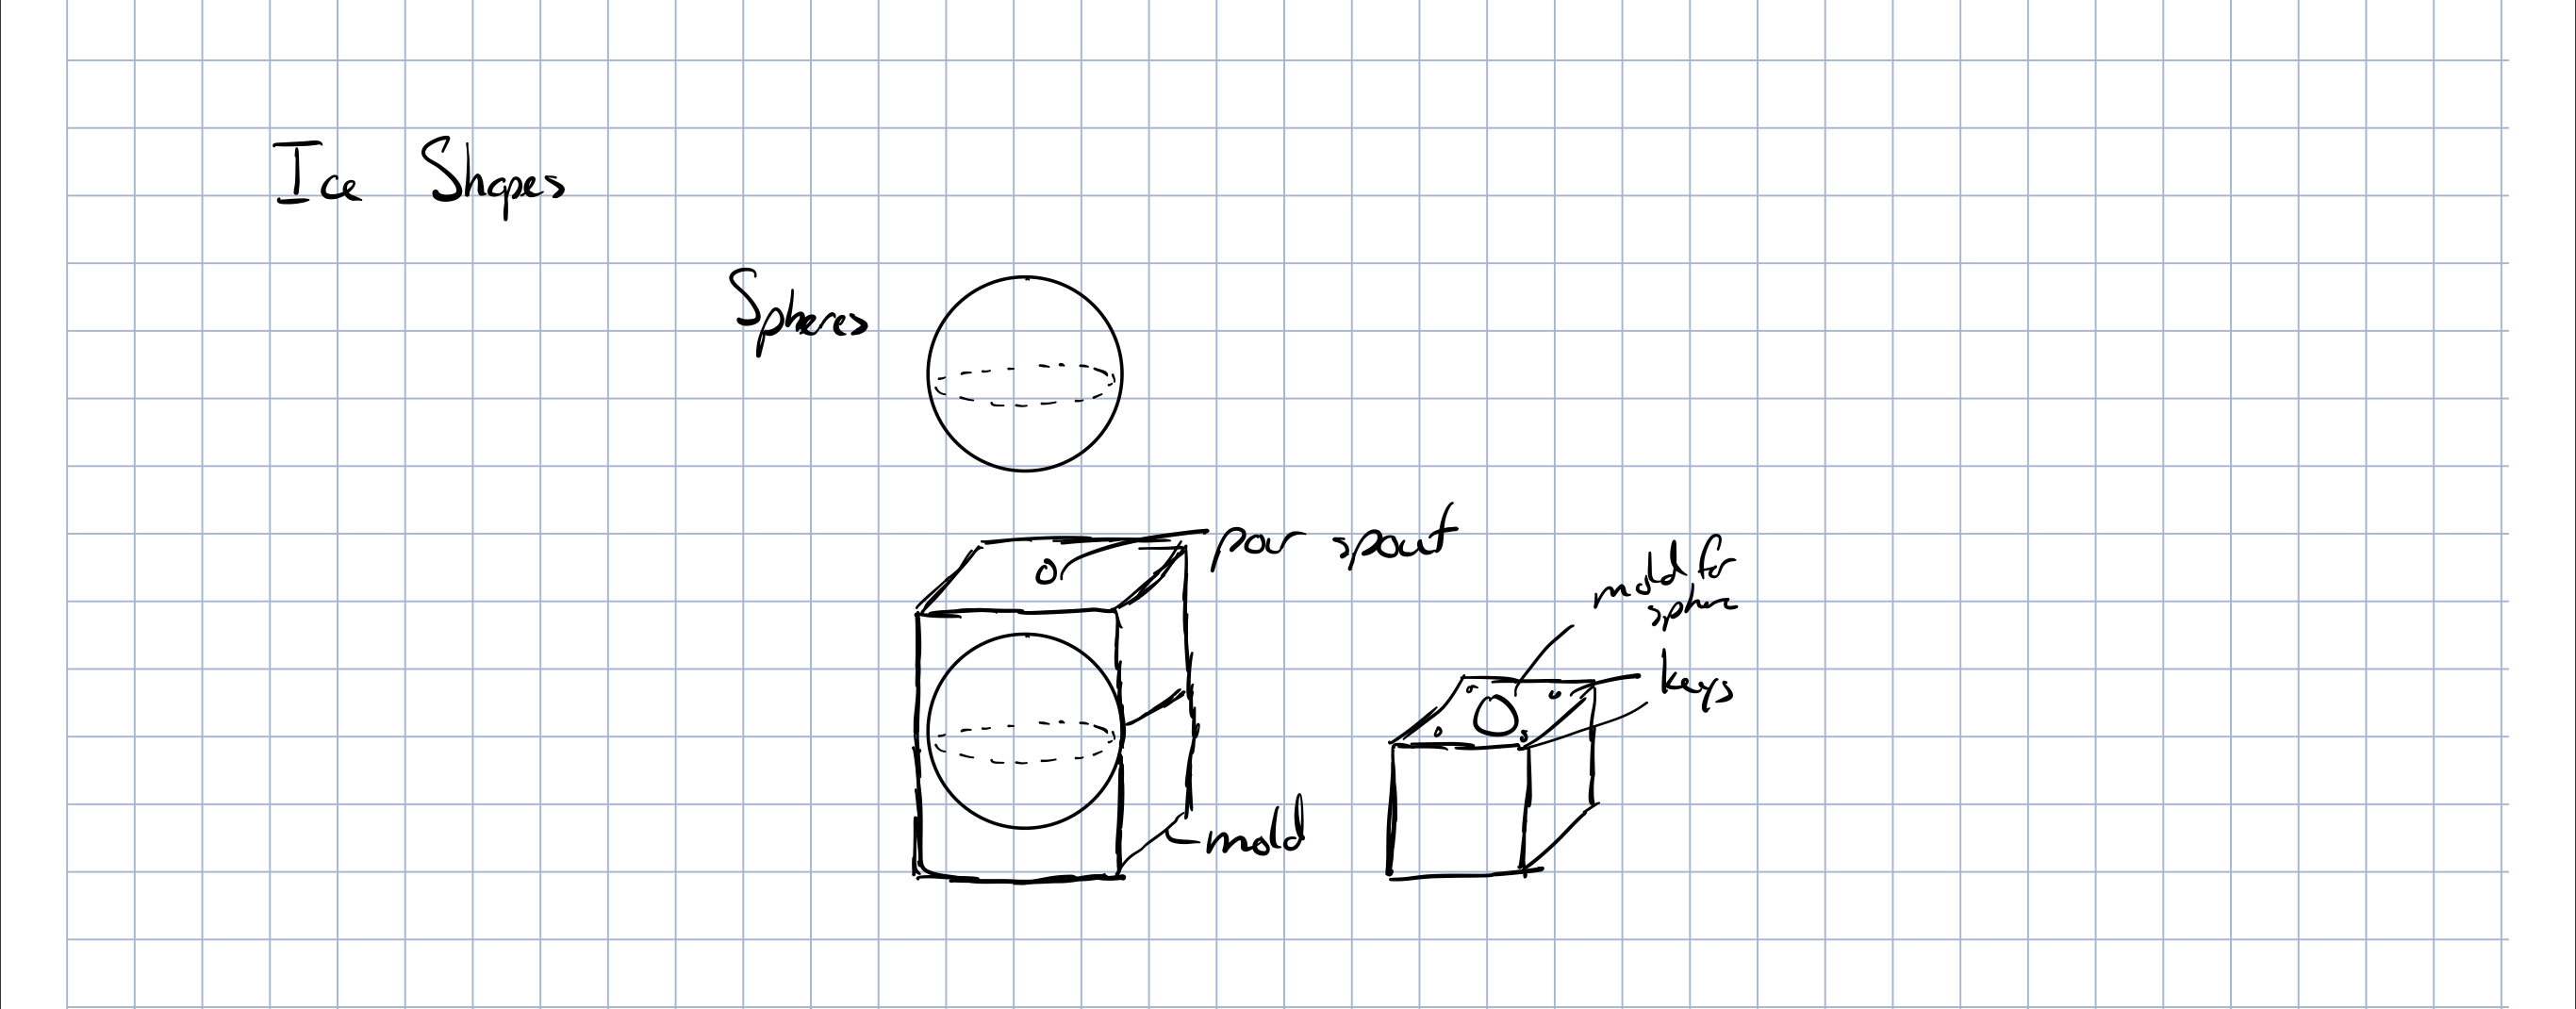 Ice Shapes
Spheres
pour spout
mold for
sphere
keys
mold